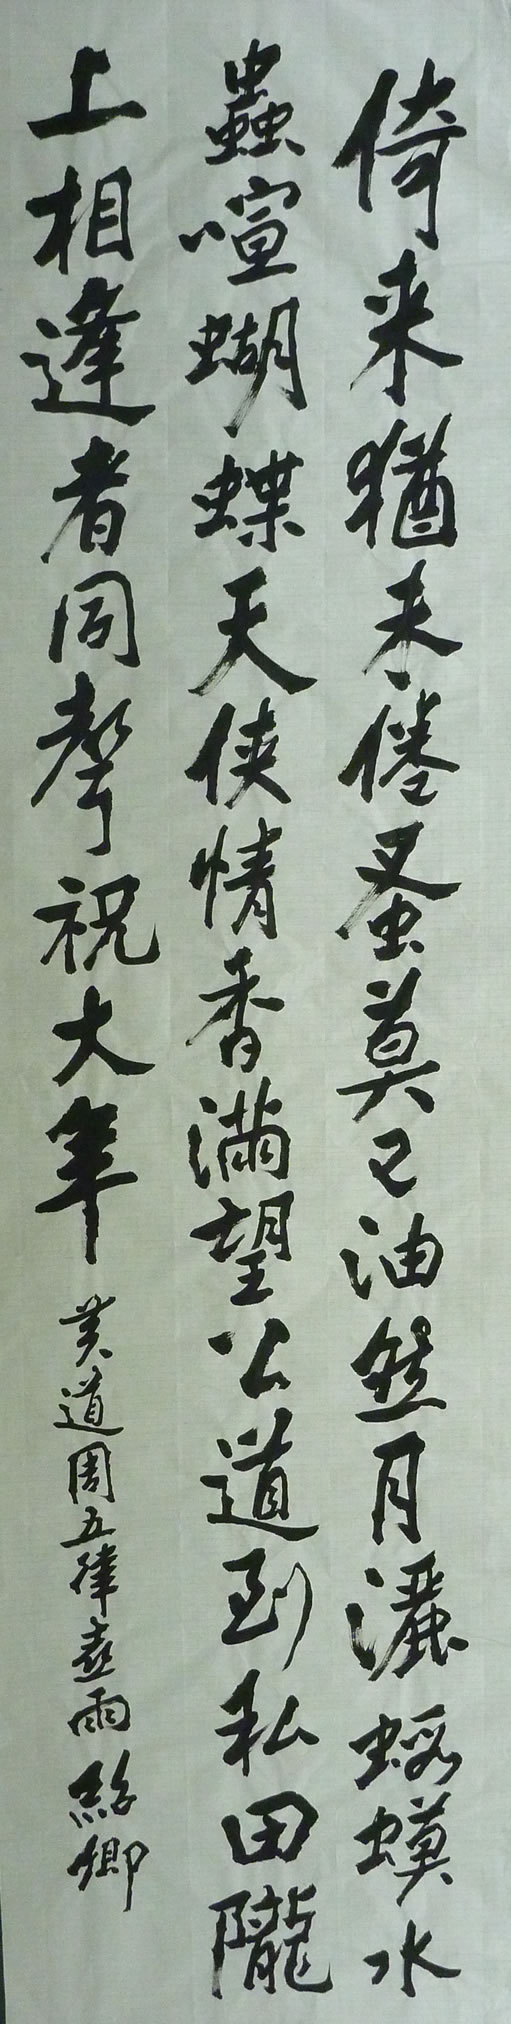 倚来猶未倦蚤莫已油然月灑蝦蟆水
蟲喧蝴蝶天俠情香滿望公道到私田隴
上相逢者同聲祝大年
黄道周五律喜雨 紹卿